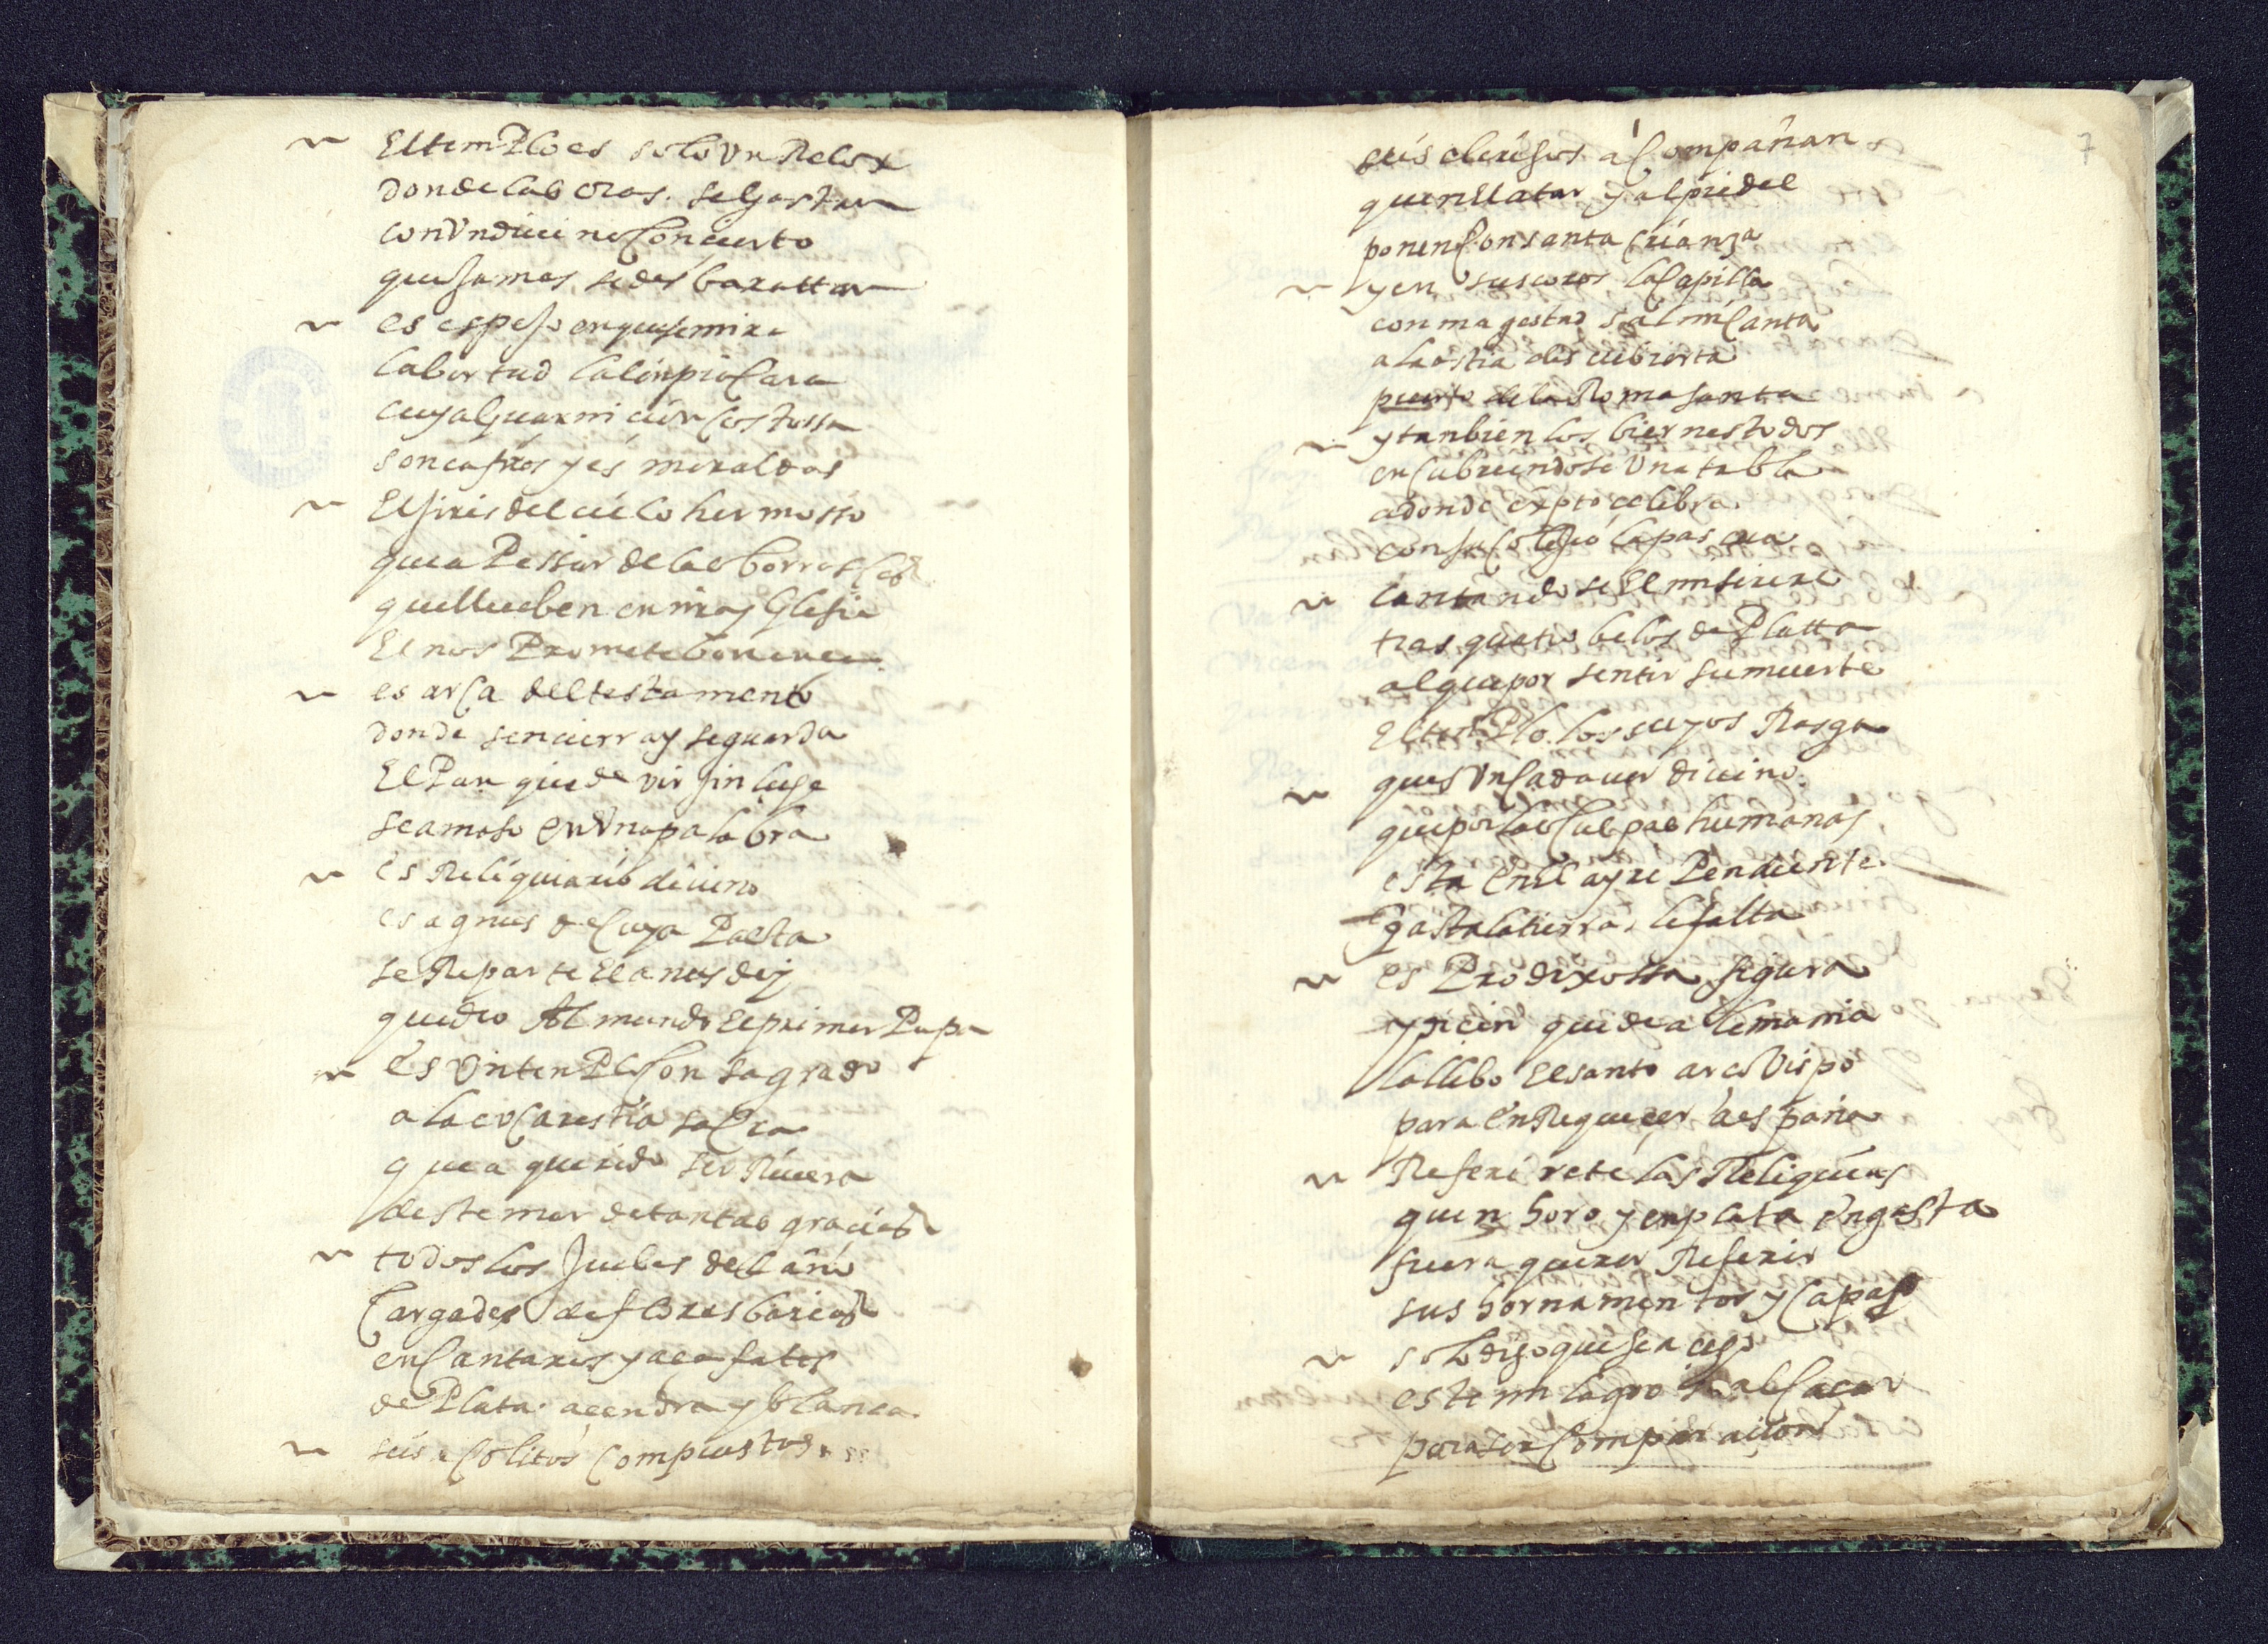 El temPlo es solo vn Relox
donde las oras. se gastan
con vn diuino Concierto
que jamas se des baxattan
es espejo en que se mira
la birtud la linpia Cara
cuya guarnicion Costossa
son cafiros y es meraldas
El jiris del cielo hermosso
que a Pessar de las borrascas
que llueben en mi ayglesia
El nos Promete bonança
es arCa del testamento
donde sencierra y se guarda
El Pan que de virjinluje
se amaso en vna palabra
es Reliquiario diuino
es agnus de Cuya Pasta
se Reparte El anus dej
que dio Al mundo el primer Papa
es vn tenPlo Con sagrado
a la euCarestia saCra
que a querido ser Riuera
deste mar de tantas gracias
todos los Juebes del año
Cargados de flores barias
en Cantaros y acafates
de Plata. acendra y blanca.
seis aColitos Compuestos
7
seis clerigos aCompañan
quen llatar y al pie del
ponen Con santa crianza
y en sus coros la Capilla
con magestad salmiCanta
a la ostia des cubierta
puerto de la Roma santa
y tanbien los biernes todos
en Cubriendose vna tabla
adonde cxpto celebra
con su Colejio la pascua
Cantando se El miserere
tras quatro belos de Platta
al que por sentir su muerte
El temPlo. los suyos Rasga
ques vn Cadauer diuino
que por las Culpas humanas
esta en El ayre Pendiente
q asta la tierra. le falta
es Prodixossa figura
y dicen que de alemania
la llebo El santo arcobispo
para en Requecer a españa
Referirete las Reliquias
quen horo y en plata engasta
fuera querer Referir
sus hornamentos y Capas
solo digo que sea cifo
este milagro del alCaçar
para ser Comparacion